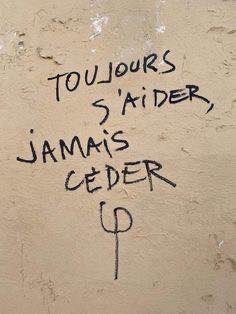 TOUJOURS
S'AiDER,
JAMAiS
CÉDER
φ